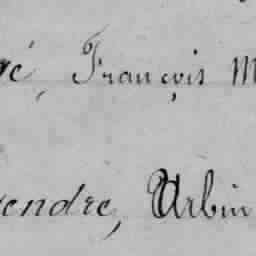 ré, François M
endre, Urbin